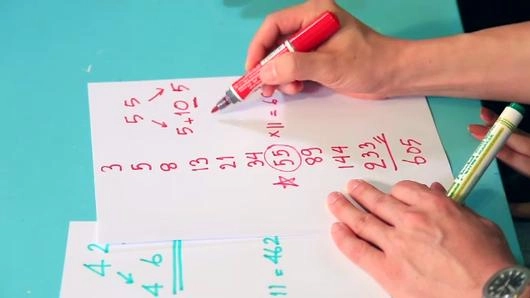 3
5
8
13
21
34
55 x11 = 6
89
144
233
605
5 5
5+10 5
4 2
4 6
11 = 462